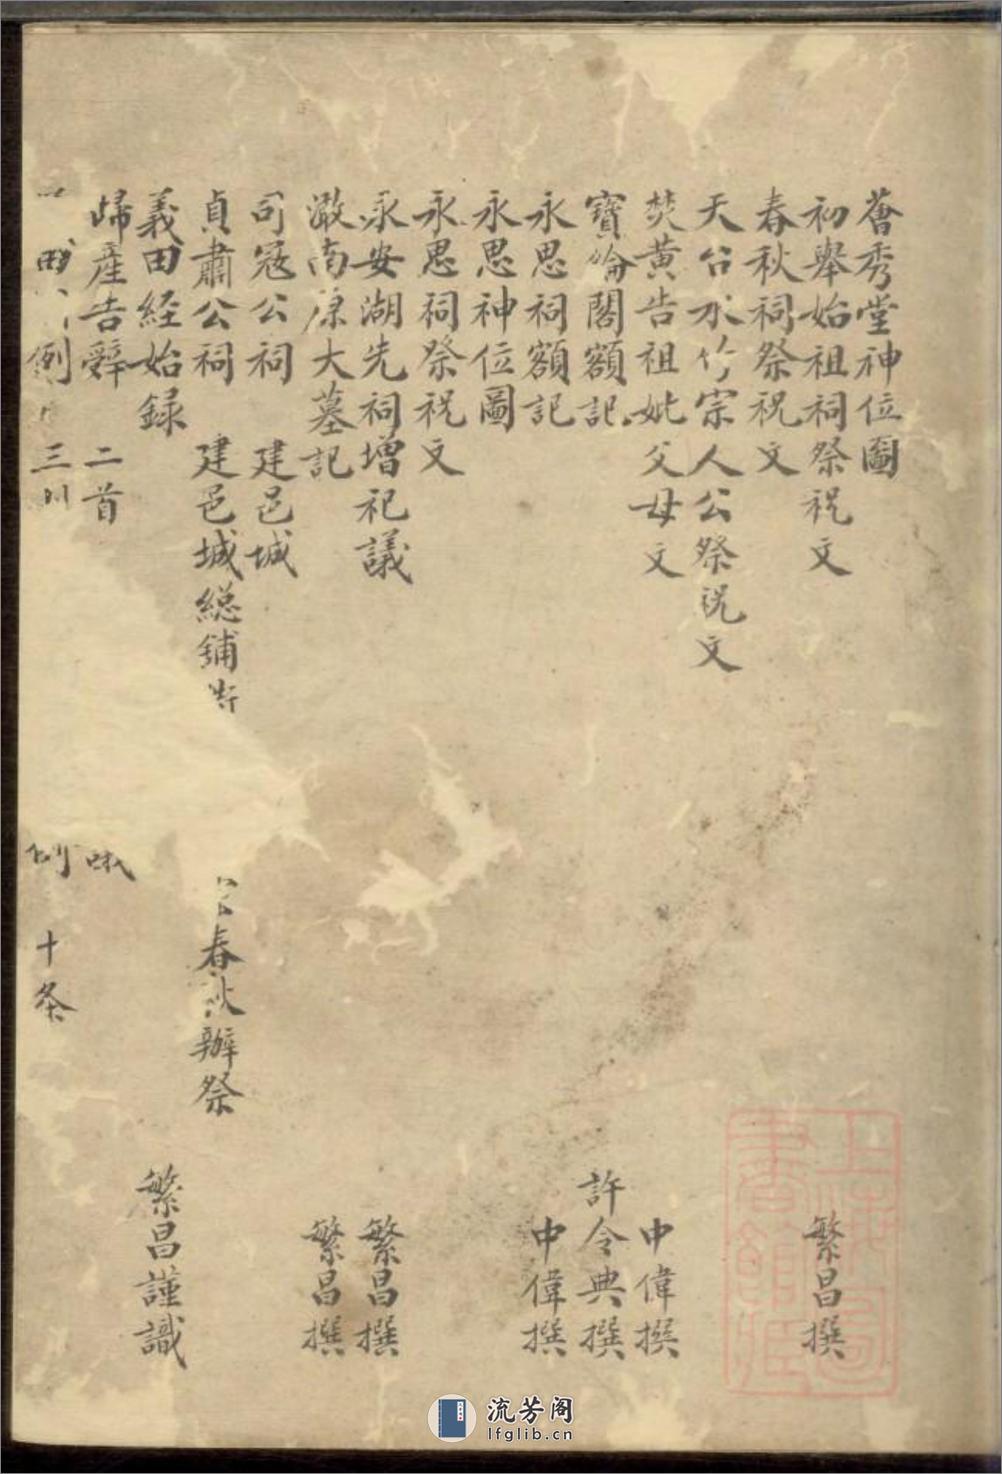 薈秀堂神位圖
初舉始祖祠祭祝文 繁昌撰
春秋祠祭祝文
天台水竹宗人公祭祝文
焚黃告祖妣父母文 中偉撰
寶綸閣額記 許令典撰
永思祠額記 中偉撰
永思神位圖
永思祠祭祝文
永安湖先祠增祀議 繁昌撰
澉南原大墓記 繁昌撰
司寇公祠 建邑城
貞肅公祠 建邑城總鋪 春秋辦祭
義田經始録 繁昌謹識
歸產告辭 二首
田 例 三 例 十条
上海圖書館藏
流芳阁
lfglib.cn